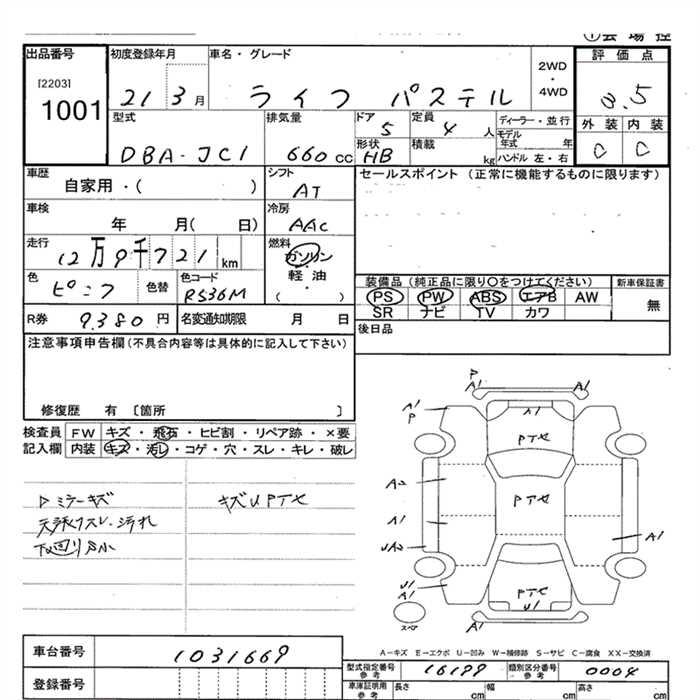 出品番号
[2203]
1001
初度登録年月
21 3月
車名・グレード
ライフ パステル
2WD
・
4WD
評価点
3.5
外装 内装
C C
型式
DBA-JC1
排気量
660cc
ドア
5
定員
4人
ディーラー・並行
モデル
年式 年
形状
HB
積載
kg
ハンドル 左・右
車歴
自家用・( )
シフト
AT
車検
年 月( 日)
冷房
AAC
走行
12万9千721km
燃料
ガソリン
軽油
・
( )
色
ピンク
色替
色コード
R536M
R券 9.380円
名変通知期限 月 日
注意事項申告欄(不具合内容等は具体的に記入して下さい)
修復歴 有 〔箇所 〕
セールスポイント (正常に機能するものに限ります)
装備品(純正品に限り○をつけてください)
PS PW ABS エアB AW
SR ナビ TV カワ
新車保証書
無
後日品
検査員
記入欄
FW キズ・飛石・ヒビ割・リペア跡・×要
内装 キズ・汚レ・コゲ・穴・スレ・キレ・破レ
Dミラーキズ
天張りスレ・汚れ
下回りS小
キズUPTX
P
A1 A1
A1
P
A1
PTX
A2
PTX
A1
UA2
A1
U1
A1
PTX
U1
A1
スペア
A-キズ E-エクボ U-凹み W-補修跡 S-サビ C-腐食 XX-交換済
車台番号 1031669
登録番号
型式指定番号
参考
16199
類別区分番号
参考
0004
車庫証明用
参考
長さ cm
幅 cm
高さ cm